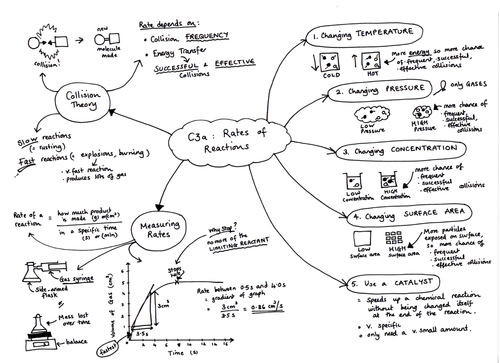 C3a: Rates of
Reactions
Collision
Theory
collision!
new
molecule
made
Rate depends on:
• Collision FREQUENCY
• Energy Transfer
SUCCESSFUL & EFFECTIVE
Collisions
Slow reactions
(= rusting)
Fast reactions (= explosions, burning)
• v.fast reaction
• produces lots of gas
1. Changing TEMPERATURE
COLD
HOT
more energy so more chance
of • frequent, successful,
• effective collisions
2. Changing PRESSURE
only GASES
LOW
Pressure
HIGH
Pressure
more chance of
• frequent
• successful,
• effective
collisions
3. Changing CONCENTRATION
LOW
Concentration
HIGH
Concentration
more chance of
• frequent
• successful
• effective collisions
4. Changing SURFACE AREA
LOW
Surface area
HIGH
surface area
More particles
exposed on surface,
so more chance of
• frequent
• successful
• effective collisions
5. Use a CATALYST
= Speeds up a chemical reaction
without being changed itself
at the end of the reaction.
• v. specific
• only need a v. small amount.
Measuring
Rates
Rate of a
reaction
= how much product
is made (g) or (cm³)
in a specific time
(s) or (min)
Gas syringe
Side-armed
flask
Mass lost
over time
balance
Volume of Gas (cm³)
Time (s)
fastest
3cm³
3.5s
Why Stop?
no more of the
LIMITING REACTANT
Rate between 0.5s and 4.0s
= gradient of graph
= 3cm³
3.5s